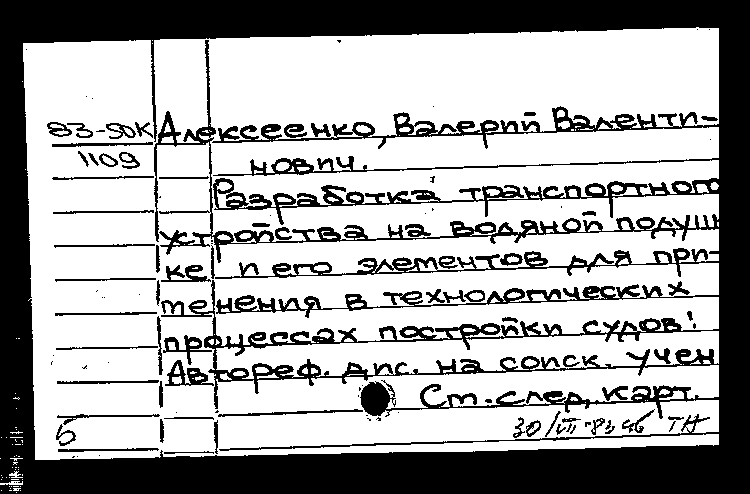 83-50К Алексеенко, Валерий Валенти-
1109 нович.
Разработка транспортного
устройства на водяной подуш
ке и его элементов для при-
менения в технологических
процессах постройки судов:
Автореф. дис. на соиск. учен
См. след. карт.
Б 30/III-83